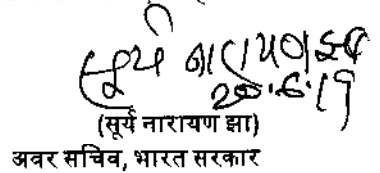 सूर्य नारायण झा
20.6.19
(सूर्य नारायण झा)
अवर सचिव, भारत सरकार